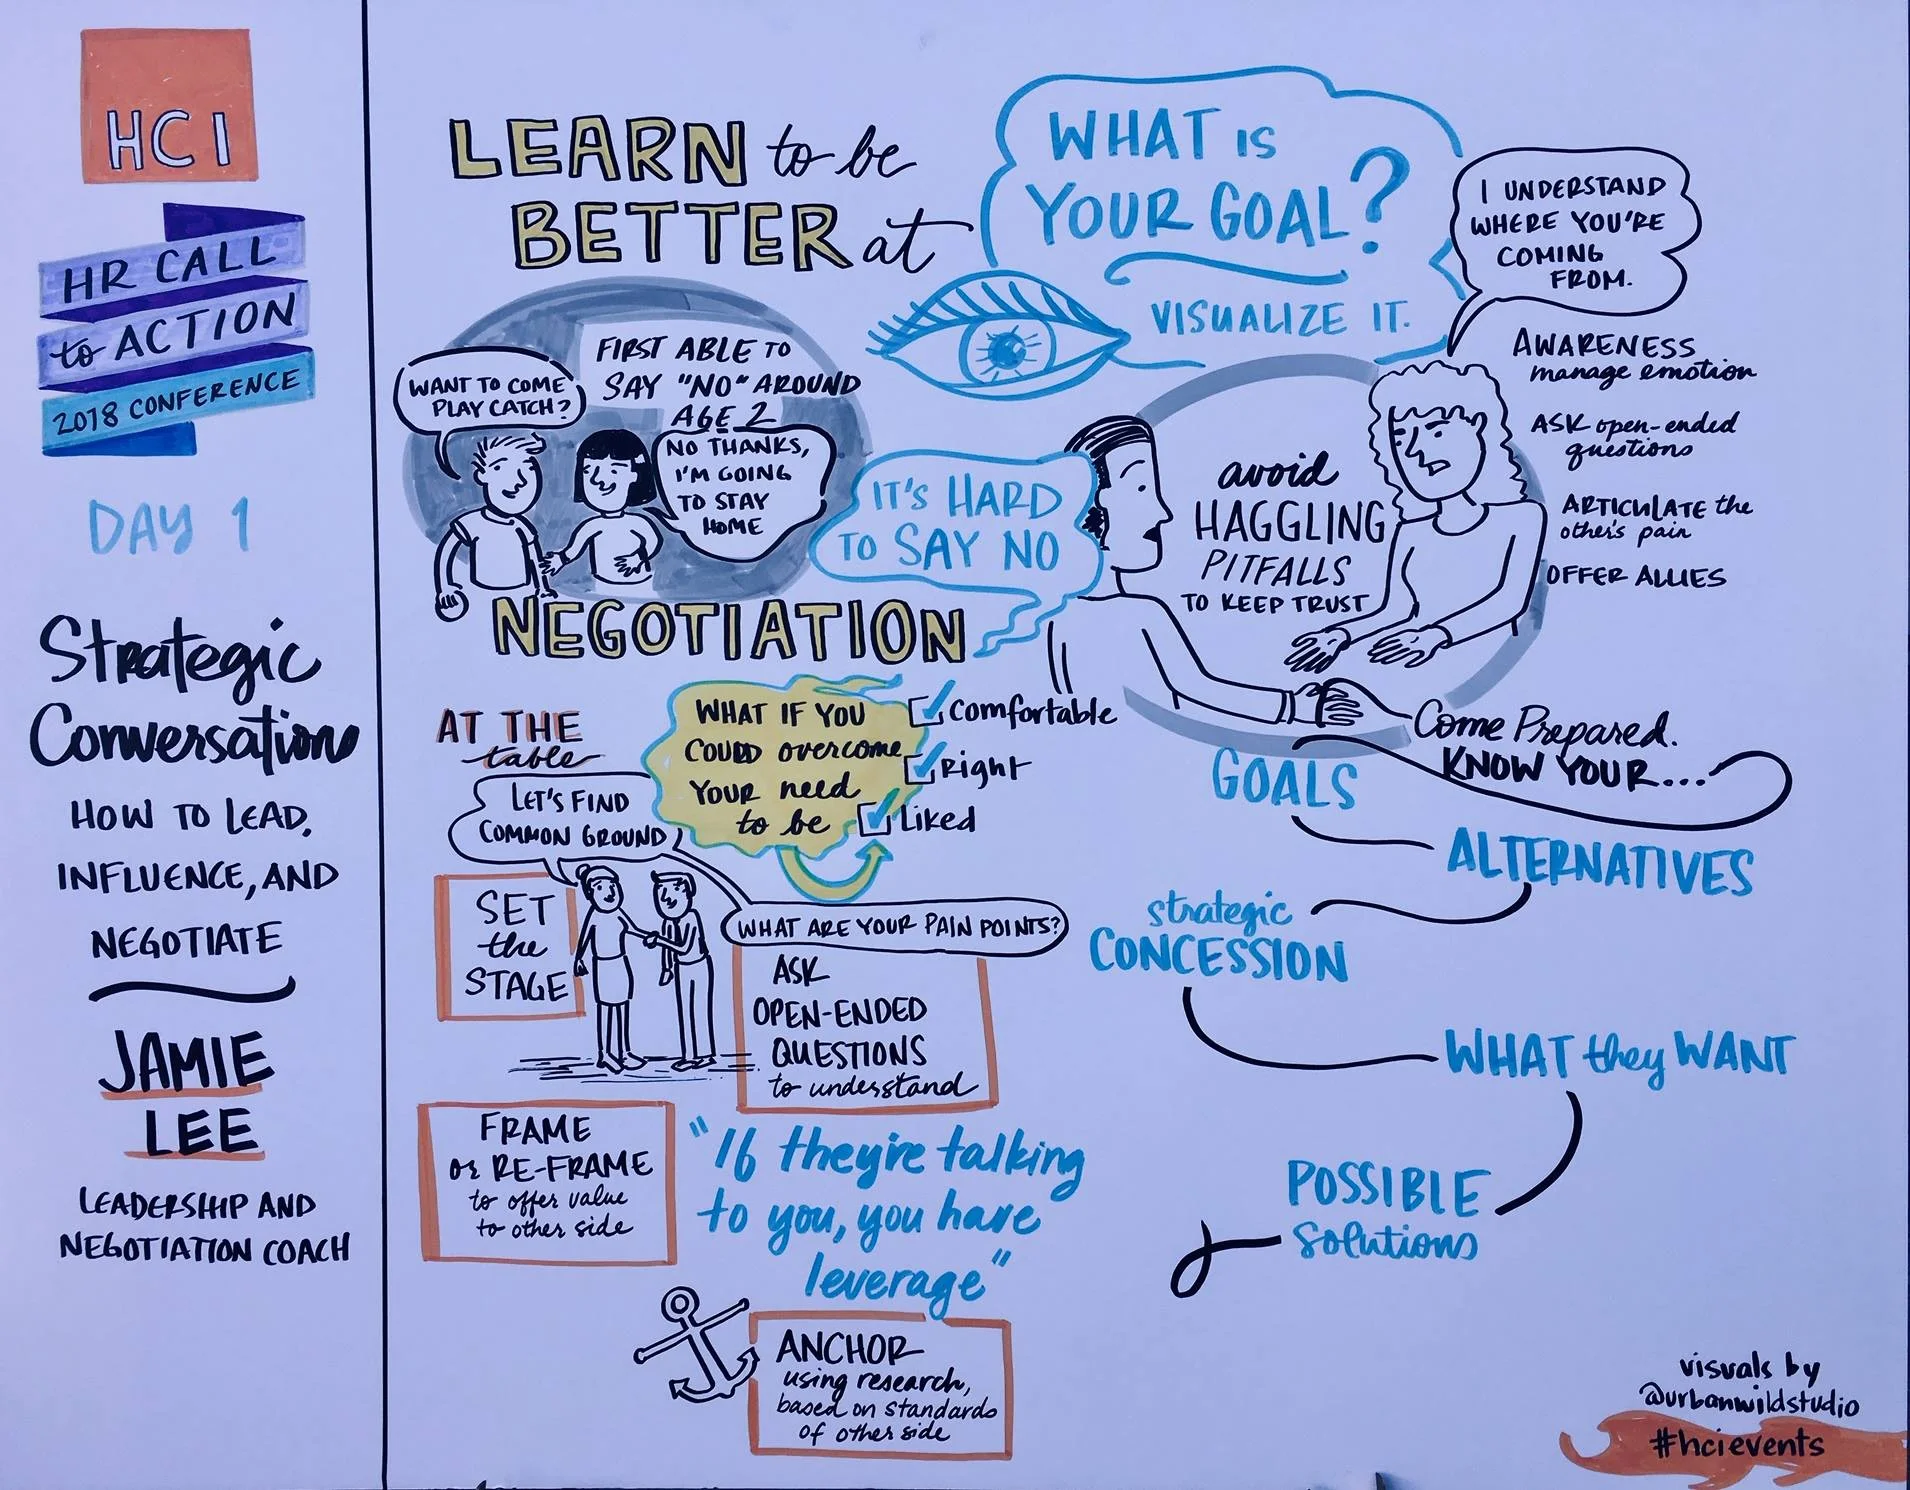 HCI
HR CALL
to ACTION
2018 CONFERENCE
DAY 1
Strategic
Conversations
HOW TO LEAD,
INFLUENCE, AND
NEGOTIATE
JAMIE
LEE
LEADERSHIP AND
NEGOTIATION COACH
LEARN to be
BETTER at
NEGOTIATION
WANT TO COME
PLAY CATCH?
FIRST ABLE TO
SAY "NO" AROUND
AGE 2
NO THANKS,
I'M GOING
TO STAY
HOME
WHAT IS
YOUR GOAL?
VISUALIZE IT.
IT'S HARD
TO SAY NO
I UNDERSTAND
WHERE YOU'RE
COMING
FROM.
avoid
HAGGLING
PITFALLS
TO KEEP TRUST
AWARENESS
manage emotion
ASK open-ended
questions
ARTICULATE the
other's pain
OFFER ALLIES
AT THE
table
LET'S FIND
COMMON GROUND
WHAT IF YOU
COULD overcome
YOUR need
to be
Comfortable
Right
Liked
SET
the
STAGE
WHAT ARE YOUR PAIN POINTS?
ASK
OPEN-ENDED
QUESTIONS
to understand
FRAME
or RE-FRAME
to offer value
to other side
"If they're talking
to you, you have
leverage"
ANCHOR
using research,
based on standards
of other side
Come Prepared.
KNOW YOUR...
GOALS
ALTERNATIVES
strategic
CONCESSION
WHAT they WANT
POSSIBLE
Solutions
visuals by
@urbanwildstudio
#hcievents